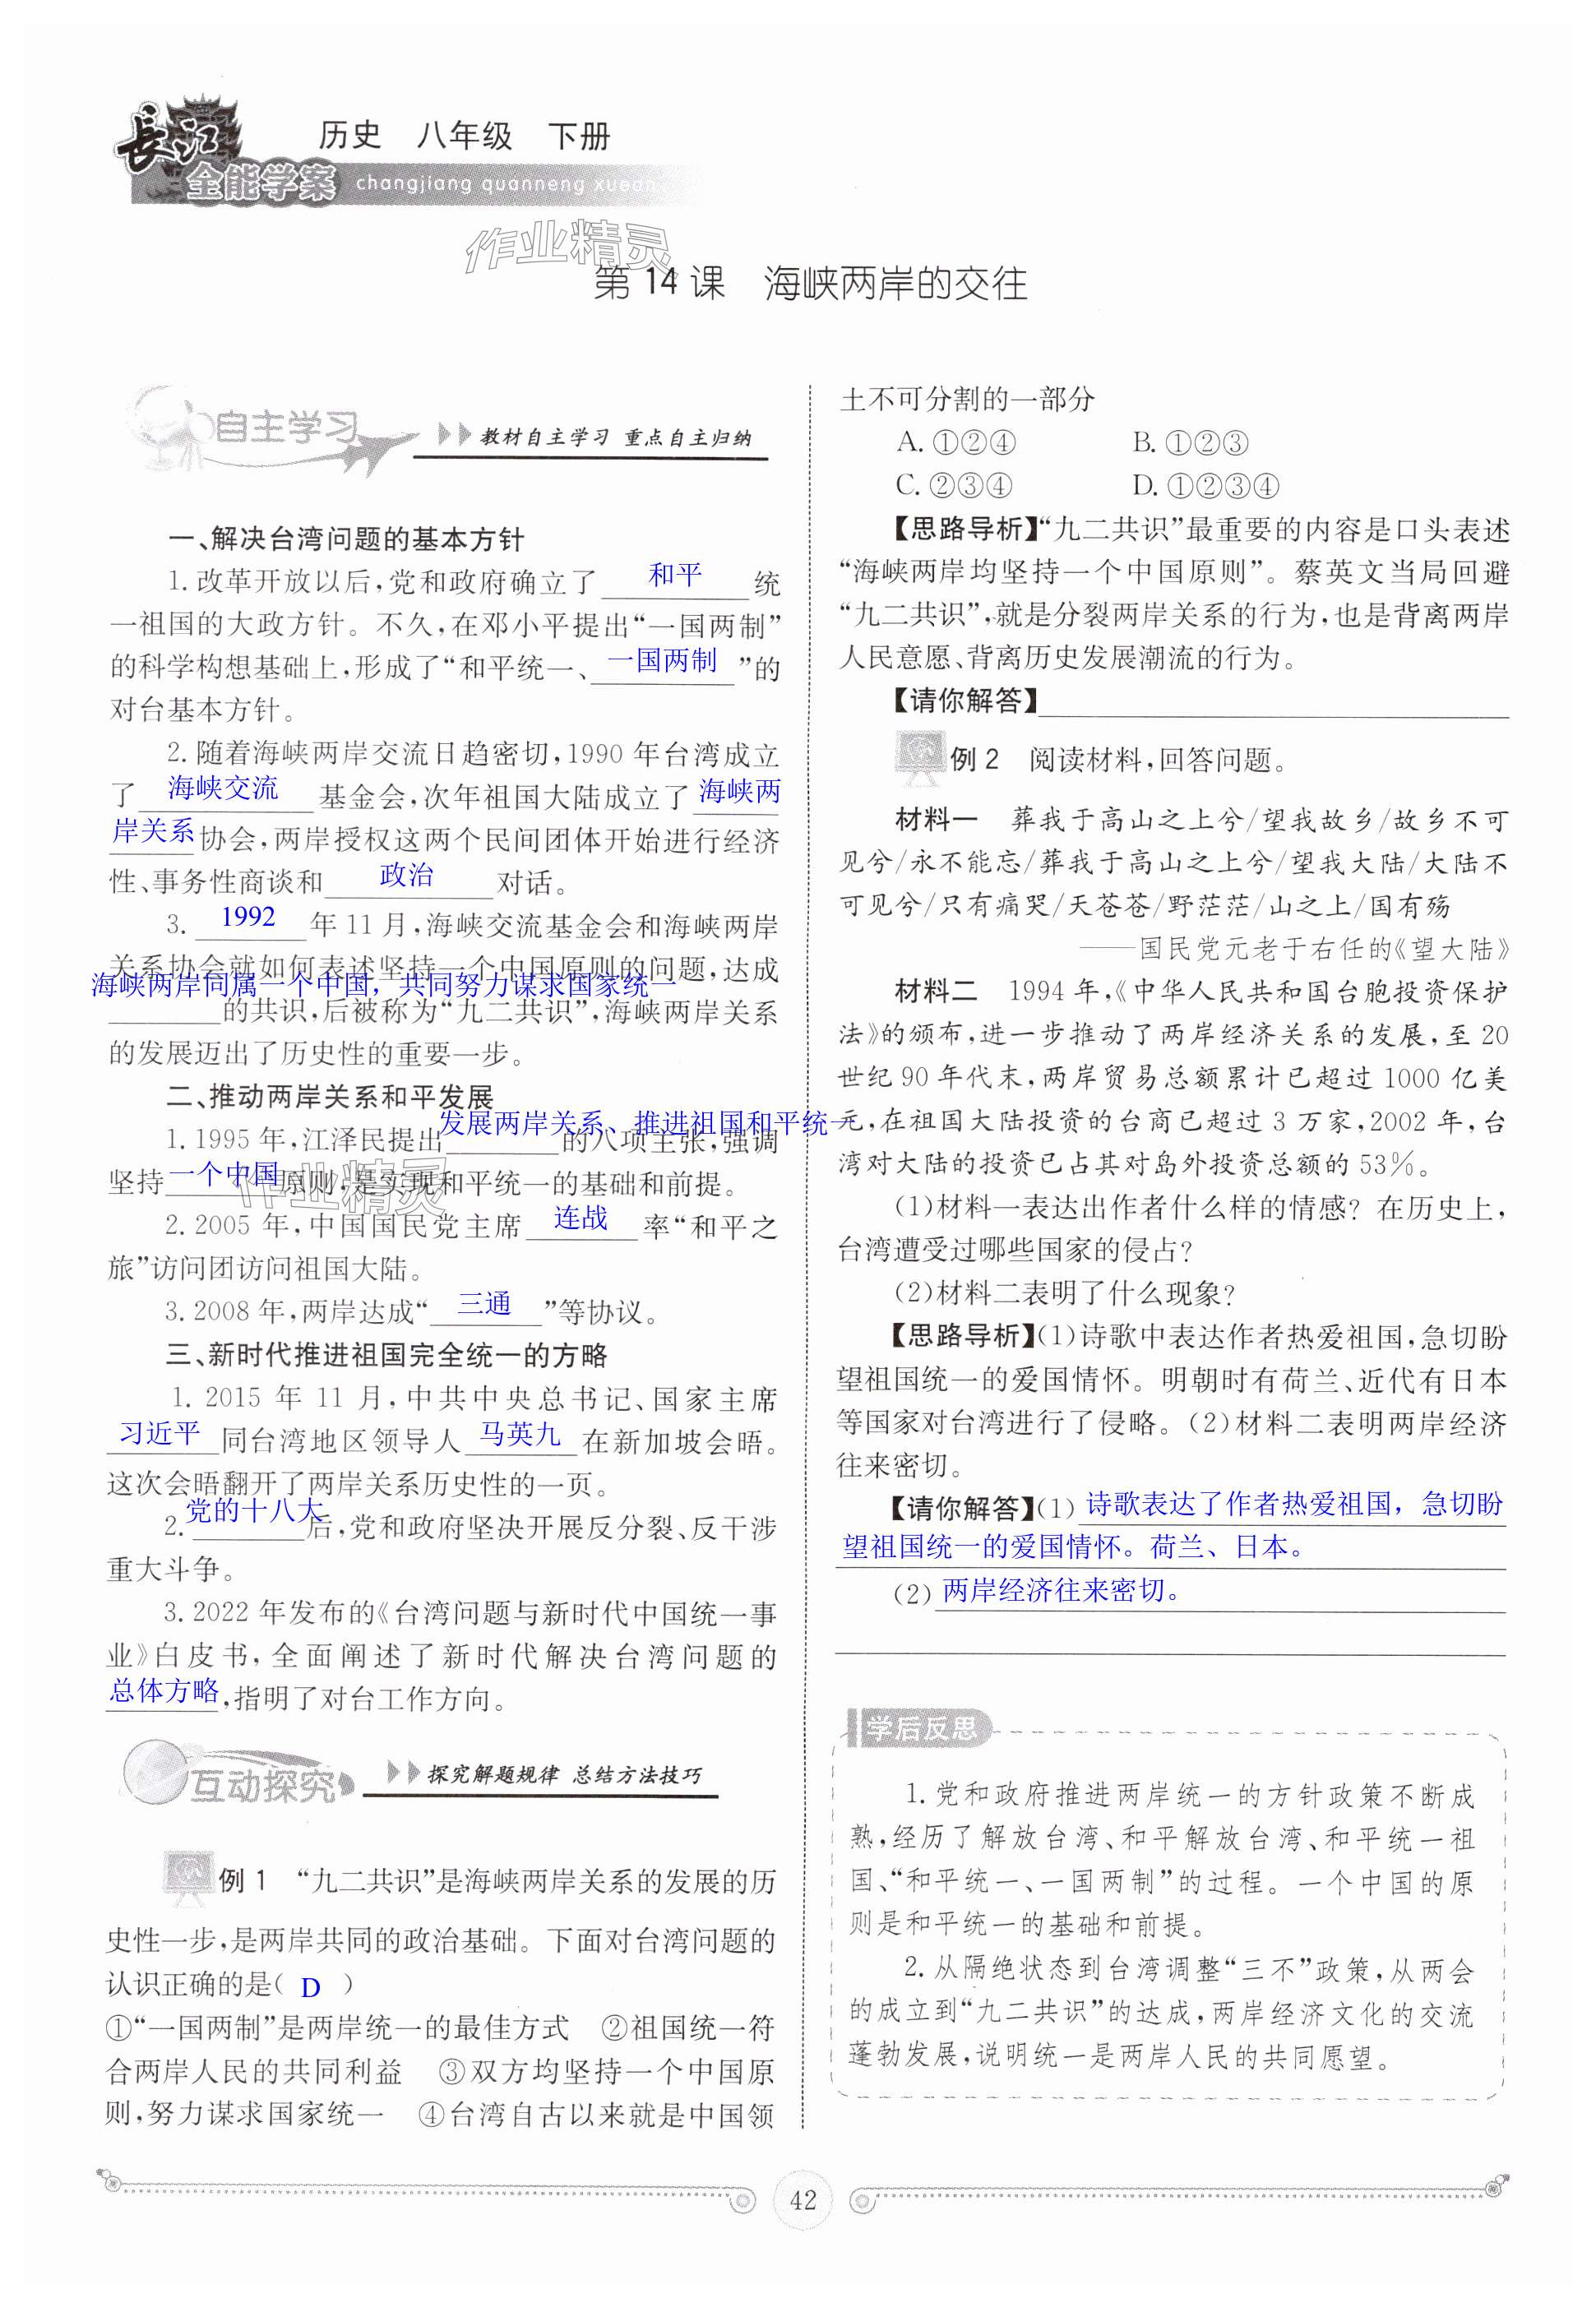 长江
历史 八年级 下册
全能学案 changjiang quanneng xuean
作业精灵
第 14 课 海峡两岸的交往
自主学习 教材自主学习 重点自主归纳
一、解决台湾问题的基本方针
1. 改革开放以后,党和政府确立了 和平 统
一祖国的大政方针。不久,在邓小平提出“一国两制”
的科学构想基础上,形成了“和平统一、一国两制 ”的
对台基本方针。
2. 随着海峡两岸交流日趋密切,1990 年台湾成立
了 海峡交流 基金会,次年祖国大陆成立了 海峡两
岸关系 协会,两岸授权这两个民间团体开始进行经济
性、事务性商谈和 政治 对话。
3. 1992 年 11 月,海峡交流基金会和海峡两岸
关系协会就如何表述坚持一个中国原则的问题,达成
海峡两岸同属一个中国，共同努力谋求国家统一
的共识,后被称为“九二共识”,海峡两岸关系
的发展迈出了历史性的重要一步。
二、推动两岸关系和平发展
发展两岸关系、推进祖国和平统一
1. 1995 年,江泽民提出 的八项主张,强调
坚持 一个中国 原则,是实现和平统一的基础和前提。
作业精灵
2. 2005 年,中国国民党主席 连战 率“和平之
旅”访问团访问祖国大陆。
3. 2008 年,两岸达成“ 三通 ”等协议。
三、新时代推进祖国完全统一的方略
1. 2015 年 11 月,中共中央总书记、国家主席
习近平 同台湾地区领导人 马英九 在新加坡会晤。
这次会晤翻开了两岸关系历史性的一页。
2. 党的十八大 后,党和政府坚决开展反分裂、反干涉
重大斗争。
3. 2022 年发布的《台湾问题与新时代中国统一事
业》白皮书,全面阐述了新时代解决台湾问题的
总体方略 ,指明了对台工作方向。
互动探究 探究解题规律 总结方法技巧
例 1 “九二共识”是海峡两岸关系的发展的历
史性一步,是两岸共同的政治基础。下面对台湾问题的
认识正确的是( D )
①“一国两制”是两岸统一的最佳方式 ②祖国统一符
合两岸人民的共同利益 ③双方均坚持一个中国原
则,努力谋求国家统一 ④台湾自古以来就是中国领
土不可分割的一部分
A. ①②④ B. ①②③
C. ②③④ D. ①②③④
【思路导析】“九二共识”最重要的内容是口头表述
“海峡两岸均坚持一个中国原则”。蔡英文当局回避
“九二共识”,就是分裂两岸关系的行为,也是背离两岸
人民意愿、背离历史发展潮流的行为。
【请你解答】
例 2 阅读材料,回答问题。
材料一 葬我于高山之上兮/望我故乡/故乡不可
见兮/永不能忘/葬我于高山之上兮/望我大陆/大陆不
可见兮/只有痛哭/天苍苍/野茫茫/山之上/国有殇
——国民党元老于右任的《望大陆》
材料二 1994 年,《中华人民共和国台胞投资保护
法》的颁布,进一步推动了两岸经济关系的发展,至 20
世纪 90 年代末,两岸贸易总额累计已超过 1000 亿美
元,在祖国大陆投资的台商已超过 3 万家,2002 年,台
湾对大陆的投资已占其对岛外投资总额的 53%。
(1)材料一表达出作者什么样的情感? 在历史上,
台湾遭受过哪些国家的侵占?
(2)材料二表明了什么现象?
【思路导析】(1)诗歌中表达作者热爱祖国,急切盼
望祖国统一的爱国情怀。明朝时有荷兰、近代有日本
等国家对台湾进行了侵略。(2)材料二表明两岸经济
往来密切。
【请你解答】(1) 诗歌表达了作者热爱祖国，急切盼
望祖国统一的爱国情怀。荷兰、日本。
(2) 两岸经济往来密切。
学后反思
1. 党和政府推进两岸统一的方针政策不断成
熟,经历了解放台湾、和平解放台湾、和平统一祖
国、“和平统一、一国两制”的过程。一个中国的原
则是和平统一的基础和前提。
2. 从隔绝状态到台湾调整“三不”政策,从两会
的成立到“九二共识”的达成,两岸经济文化的交流
蓬勃发展,说明统一是两岸人民的共同愿望。
42